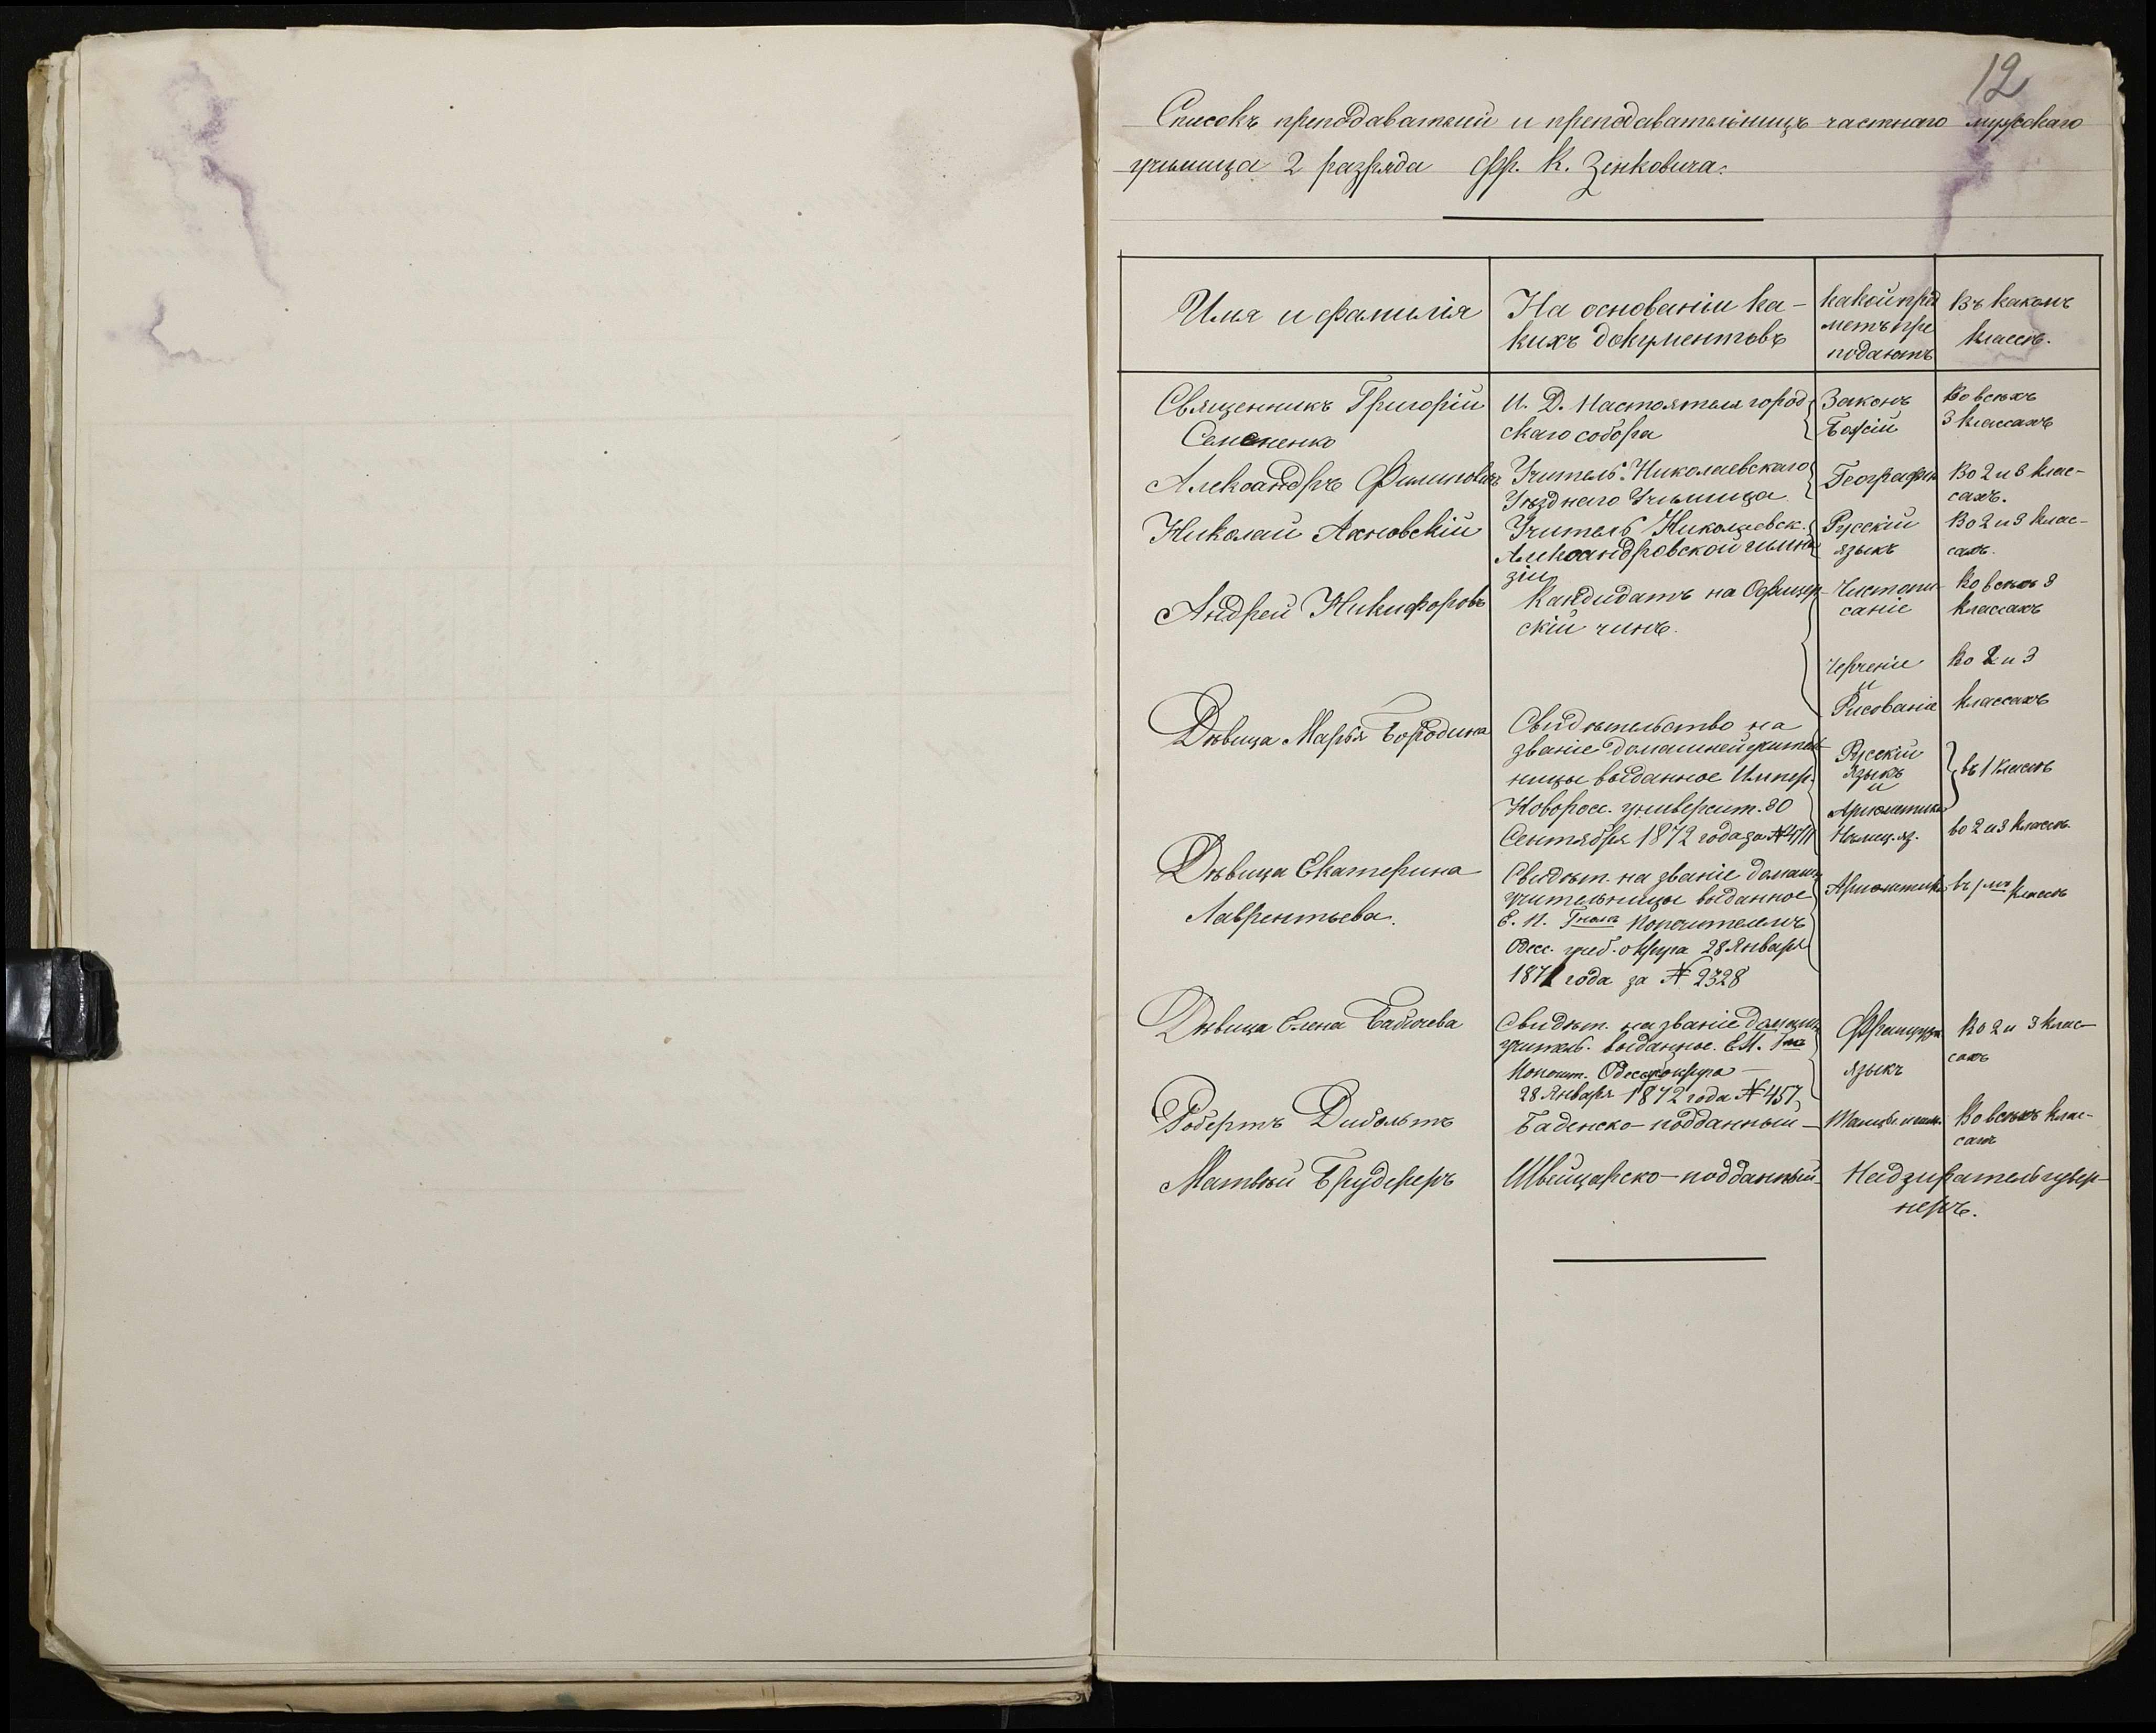 12
Списокъ преподавателей и преподавательницъ частнаго мужскаго
училища 2 разряда Фр. К. Зенковича.
Имя и фамилія
На основаніи ка-
кихъ документовъ
Какой пред
метъ пре
подаютъ
Въ какомъ
классѣ.
Священникъ Григорій
Семененко
И. Д. Настоятеля город
скаго собора
Законъ
Божій
Во всѣхъ
3 классахъ
Александръ Филиповичъ
Учитель Николаевскаго
Уѣзднаго Училища
Географія
Во 2 и 3 клас-
сахъ.
Николай
Учитель Николаевск.
Александровской гимна
зіи
Русскій
языкъ
Во 2 и 3 клас-
сахъ.
Андрей Никифоровъ
Кандидатъ на Офицер-
скій чинъ.
Чистопи-
саніе
Во всѣхъ 3
классахъ
Черченіе
и
Рисованіе
Во 2 и 3
классахъ
Дѣвица Марья Бородина
Свидѣтельство на
званіе домашней учитель
ницы выданное Импер.
Новорос. университ. 30
Сентября 1872 года за №
Русскій
языкъ
и
Ариѳметика
въ 1 классѣ
Нѣмец. яз.
во 2 и 3 классѣ.
Дѣвица Екатерина
Лаврентьева.
Свидѣт. на званіе домаш
учительницы выданное
Попечителемъ
Одес. учеб. округа 28 Января
1871 года за № 2328
Ариѳметика
въ 1мъ классѣ
Дѣвица Елена
Свидѣт. на званіе домашн
учитель. выданное.
Попечит. Одес. округа
28 Января 1872 года № 457
Француз.
языкъ
Во 2 и 3 клас-
сахъ
Робертъ Дибольтъ
Баденско-подданный
Танцы и гимн.
Во всѣхъ клас-
сахъ
Матвѣй Брудереръ
Швейцарско-подданный
Надзиратель гувер-
неръ.